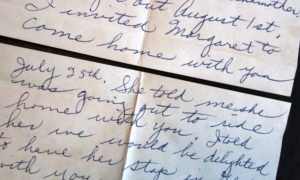 out August 1st,
I invited Margaret to
come home with you
July 25th. She told me she
was going out to ride
home with you. I told
her we would be delighted
to have her stop
with you